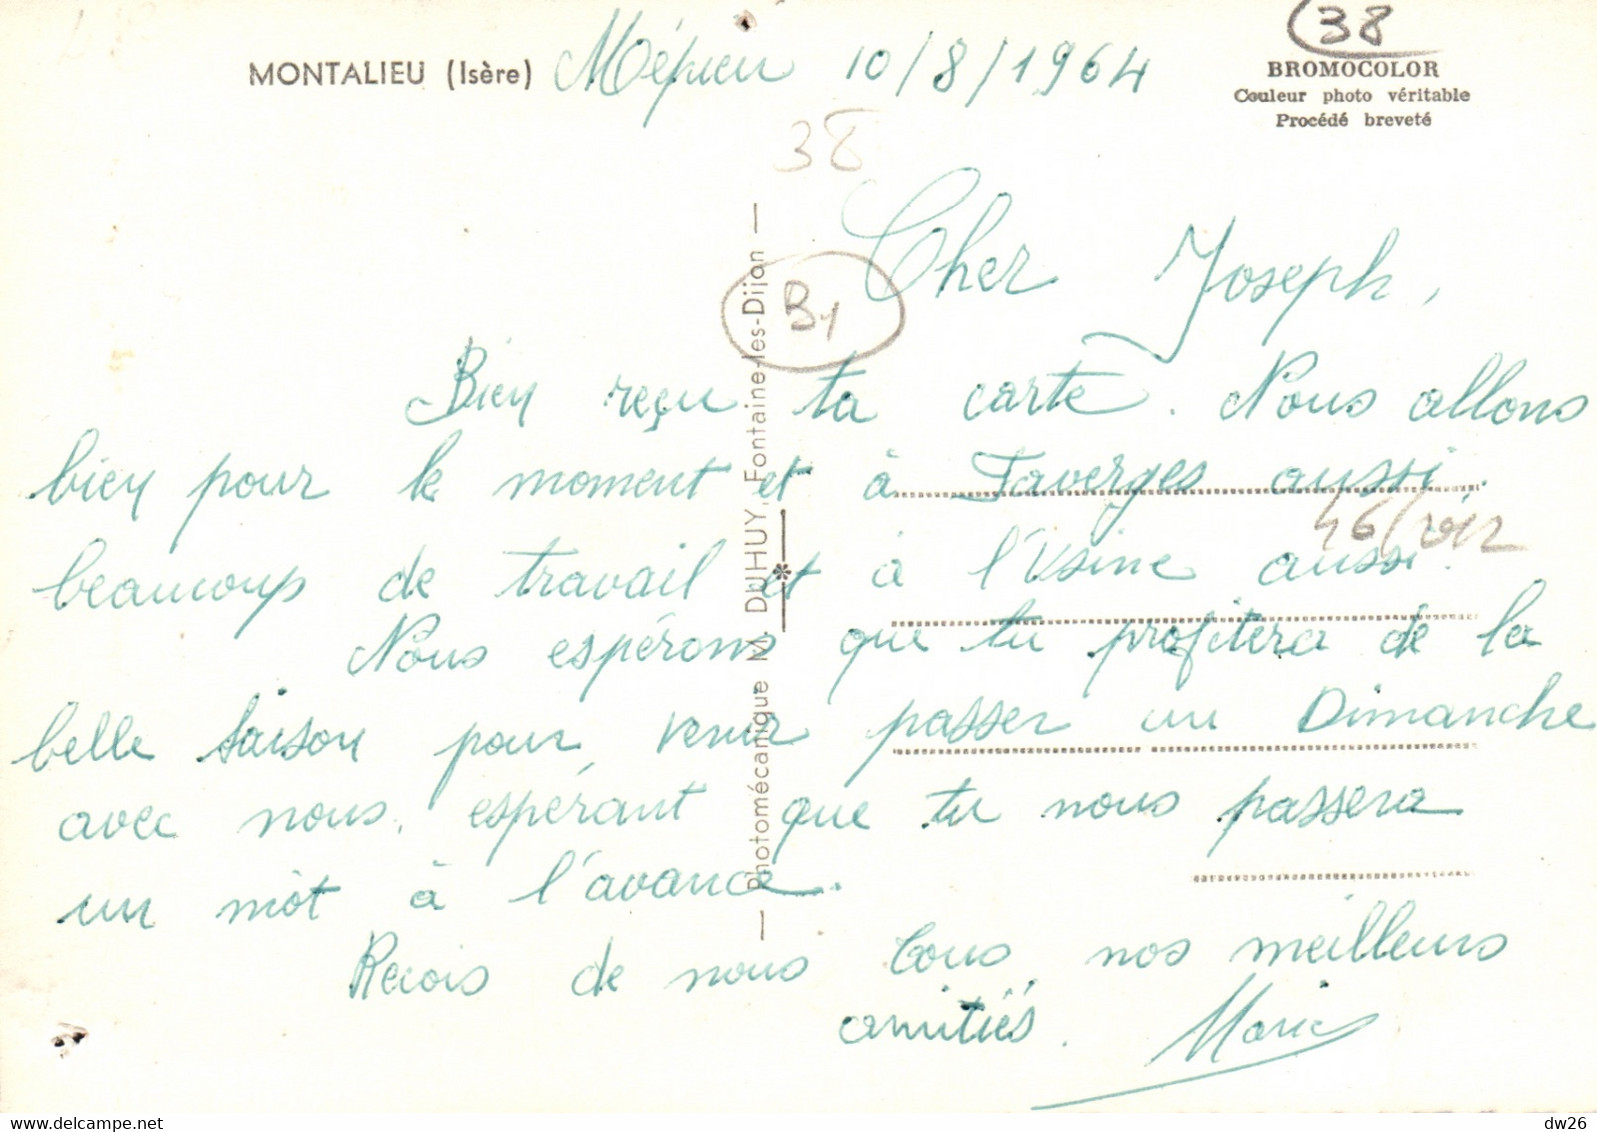 MONTALIEU (Isère) Mépieu 10/8/1964
38
BROMOCOLOR
Couleur photo véritable
Procédé breveté
38
Cher Joseph,
B1
Bien reçu ta carte. Nous allons
bien pour le moment et à Faverges aussi,
beaucoup de travail et à l'Usine aussi.
Nous espérons que tu profitera de la
belle saison pour venir passer un Dimanche
avec nous, espérant que tu nous passera
un mot à l'avance.
Recois de nous tous, nos meilleurs
amitiés. Marie
— Photomécanique M. DUHUY, Fontaine-les-Dijon —
dw26